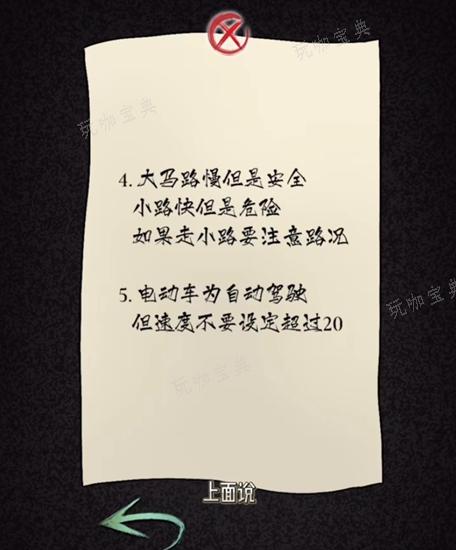 玩咖宝典
玩咖宝典
4. 大马路慢但是安全
小路快但是危险
如果走小路要注意路况
5. 电动车为自动驾驶
但速度不要设定超过20
玩咖宝典
玩咖宝典
上面说